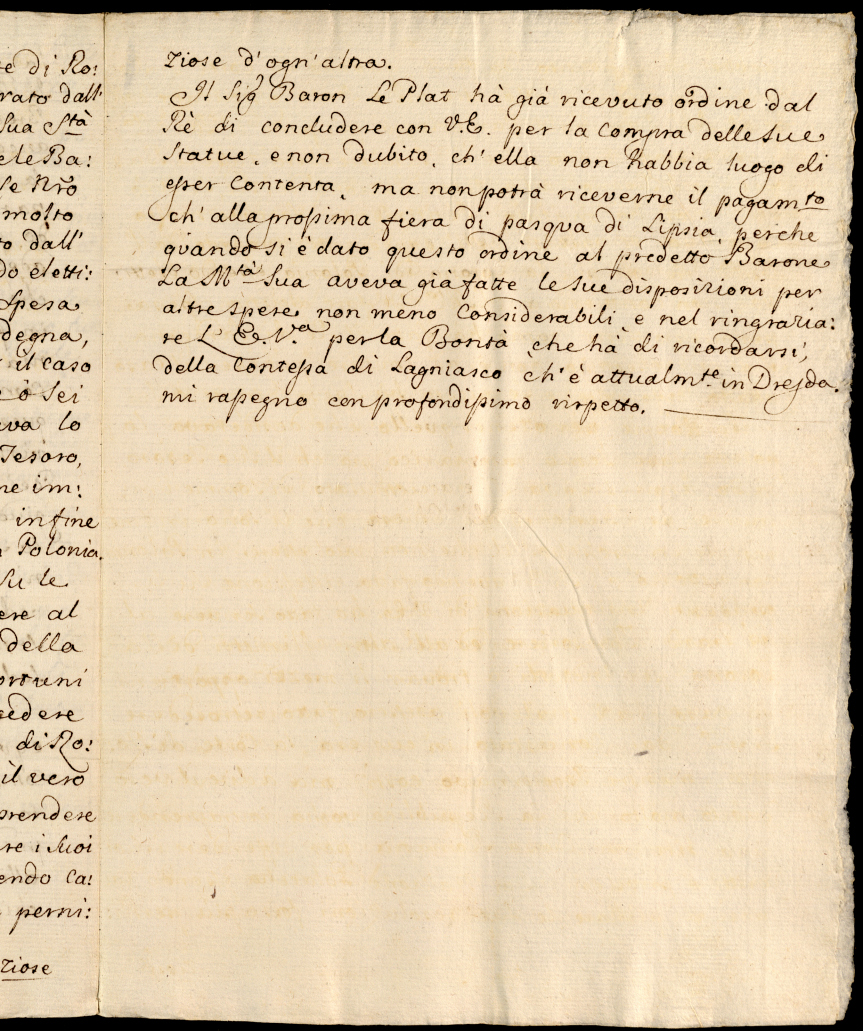 te di Ro:
rato dall'
Sua Stà
ele Ba:
Se Nrõ
molto
to dall'
do eletti:
Spesa
degna,
il caso
ò sei
ava lo
Tesoro,
ne im:
infine
Polonia.
Su le
ere al
della
ortuni
cedere
di Ro:
il vero
prendere
re i suoi
endo ca:
perni:
ziose
ziose d'ogn'altra.
Il Sigr Baron Le Plat hà già ricevuto ordine dal
Rè di concludere con V.E. per la Compra delle sue
Statue, e non dubito, ch'ella non habbia luogo di
esser Contenta, ma non potrà riceverne il pagamto
ch'alla prossima fiera di pasqua di Lipsia, perche
quando si è dato questo ordine al predetto Barone
La Mtà Sua aveva già fatte le sue disposizioni per
altre spese non meno Considerabili, e nel ringrazia:
re L'Ec.Va per la Bontà che hà di ricordarsi,
della Contessa di Lagniasco ch'è attualmte in Dresda.
mi rassegno con profondissimo rispetto.